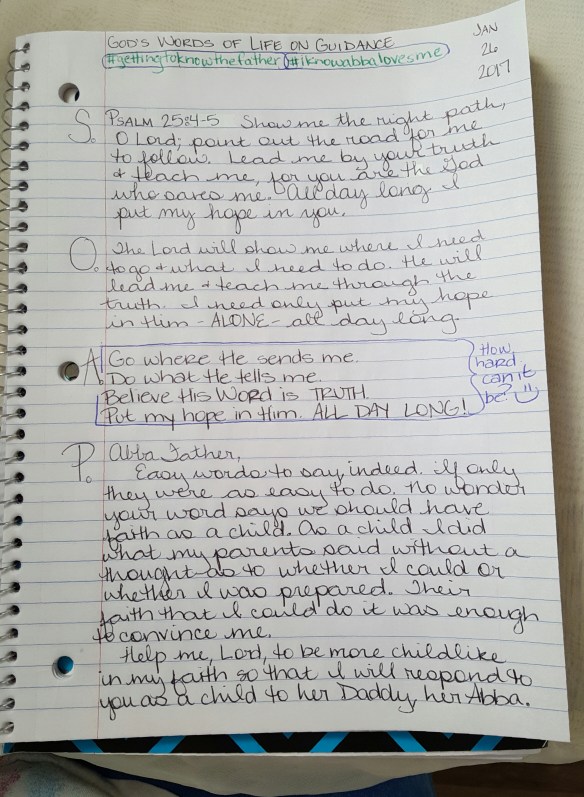 GOD'S WORDS OF LIFE ON GUIDANCE
#gettingtoknowthefather #iknowabbalovesme
JAN
26
2017
S. PSALM 25:4-5 Show me the right path,
O Lord; point out the road for me
to follow. Lead me by your truth
& teach me, for you are the God
who saves me. All day long I
put my hope in you.
O. The Lord will show me where I need
to go & what I need to do. He will
lead me & teach me through the
truth. I need only put my hope
in Him - ALONE - all day long.
A. Go where He sends me.
Do what He tells me.
Believe His WORD is TRUTH.
Put my hope in Him. ALL DAY LONG!
How
hard
can it
be?
P. Abba Father,
Easy words to say indeed. If only
they were as easy to do. No wonder
your word says we should have
faith as a child. As a child I did
what my parents said without a
thought as to whether I could or
whether I was prepared. Their
faith that I could do it was enough
to convince me.
Help me, Lord, to be more childlike
in my faith so that I will respond to
you as a child to her Daddy, her Abba.